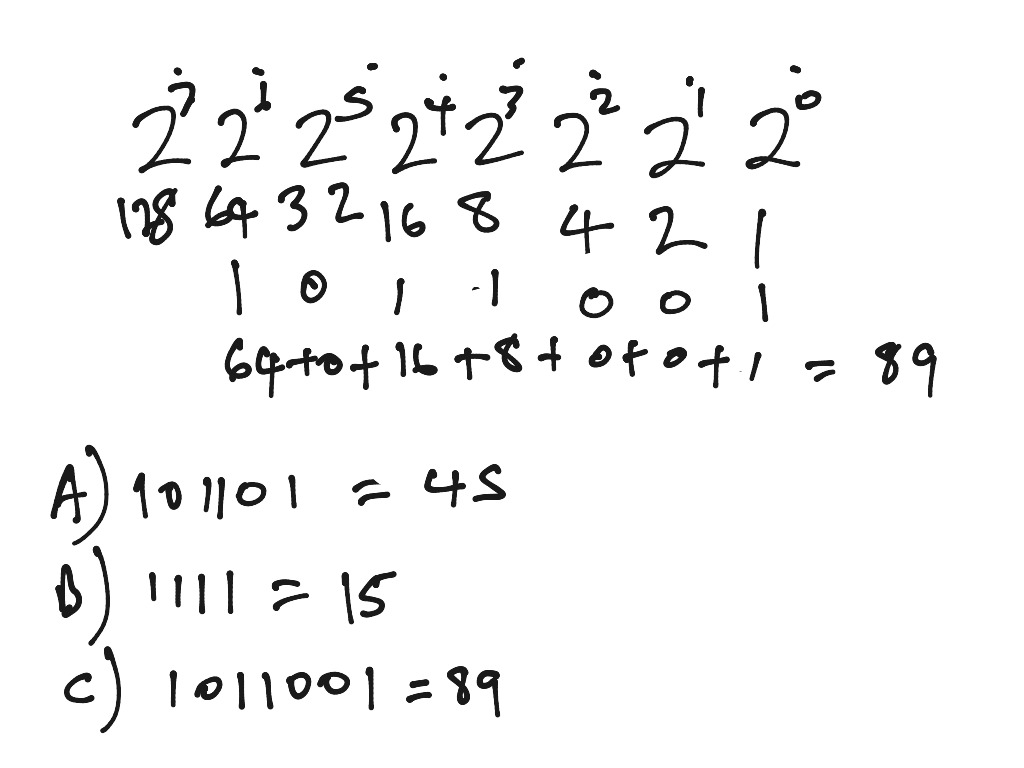 2⁷ 2¹ 2⁵ 2⁴ 2³ 2² 2¹ 2⁰
128 64 32 16 8 4 2 1
1 0 1 1 0 0 1
64+0+16+8+0+0+1 = 89
A) 101101 = 45
B) 1111 = 15
C) 1011001 = 89